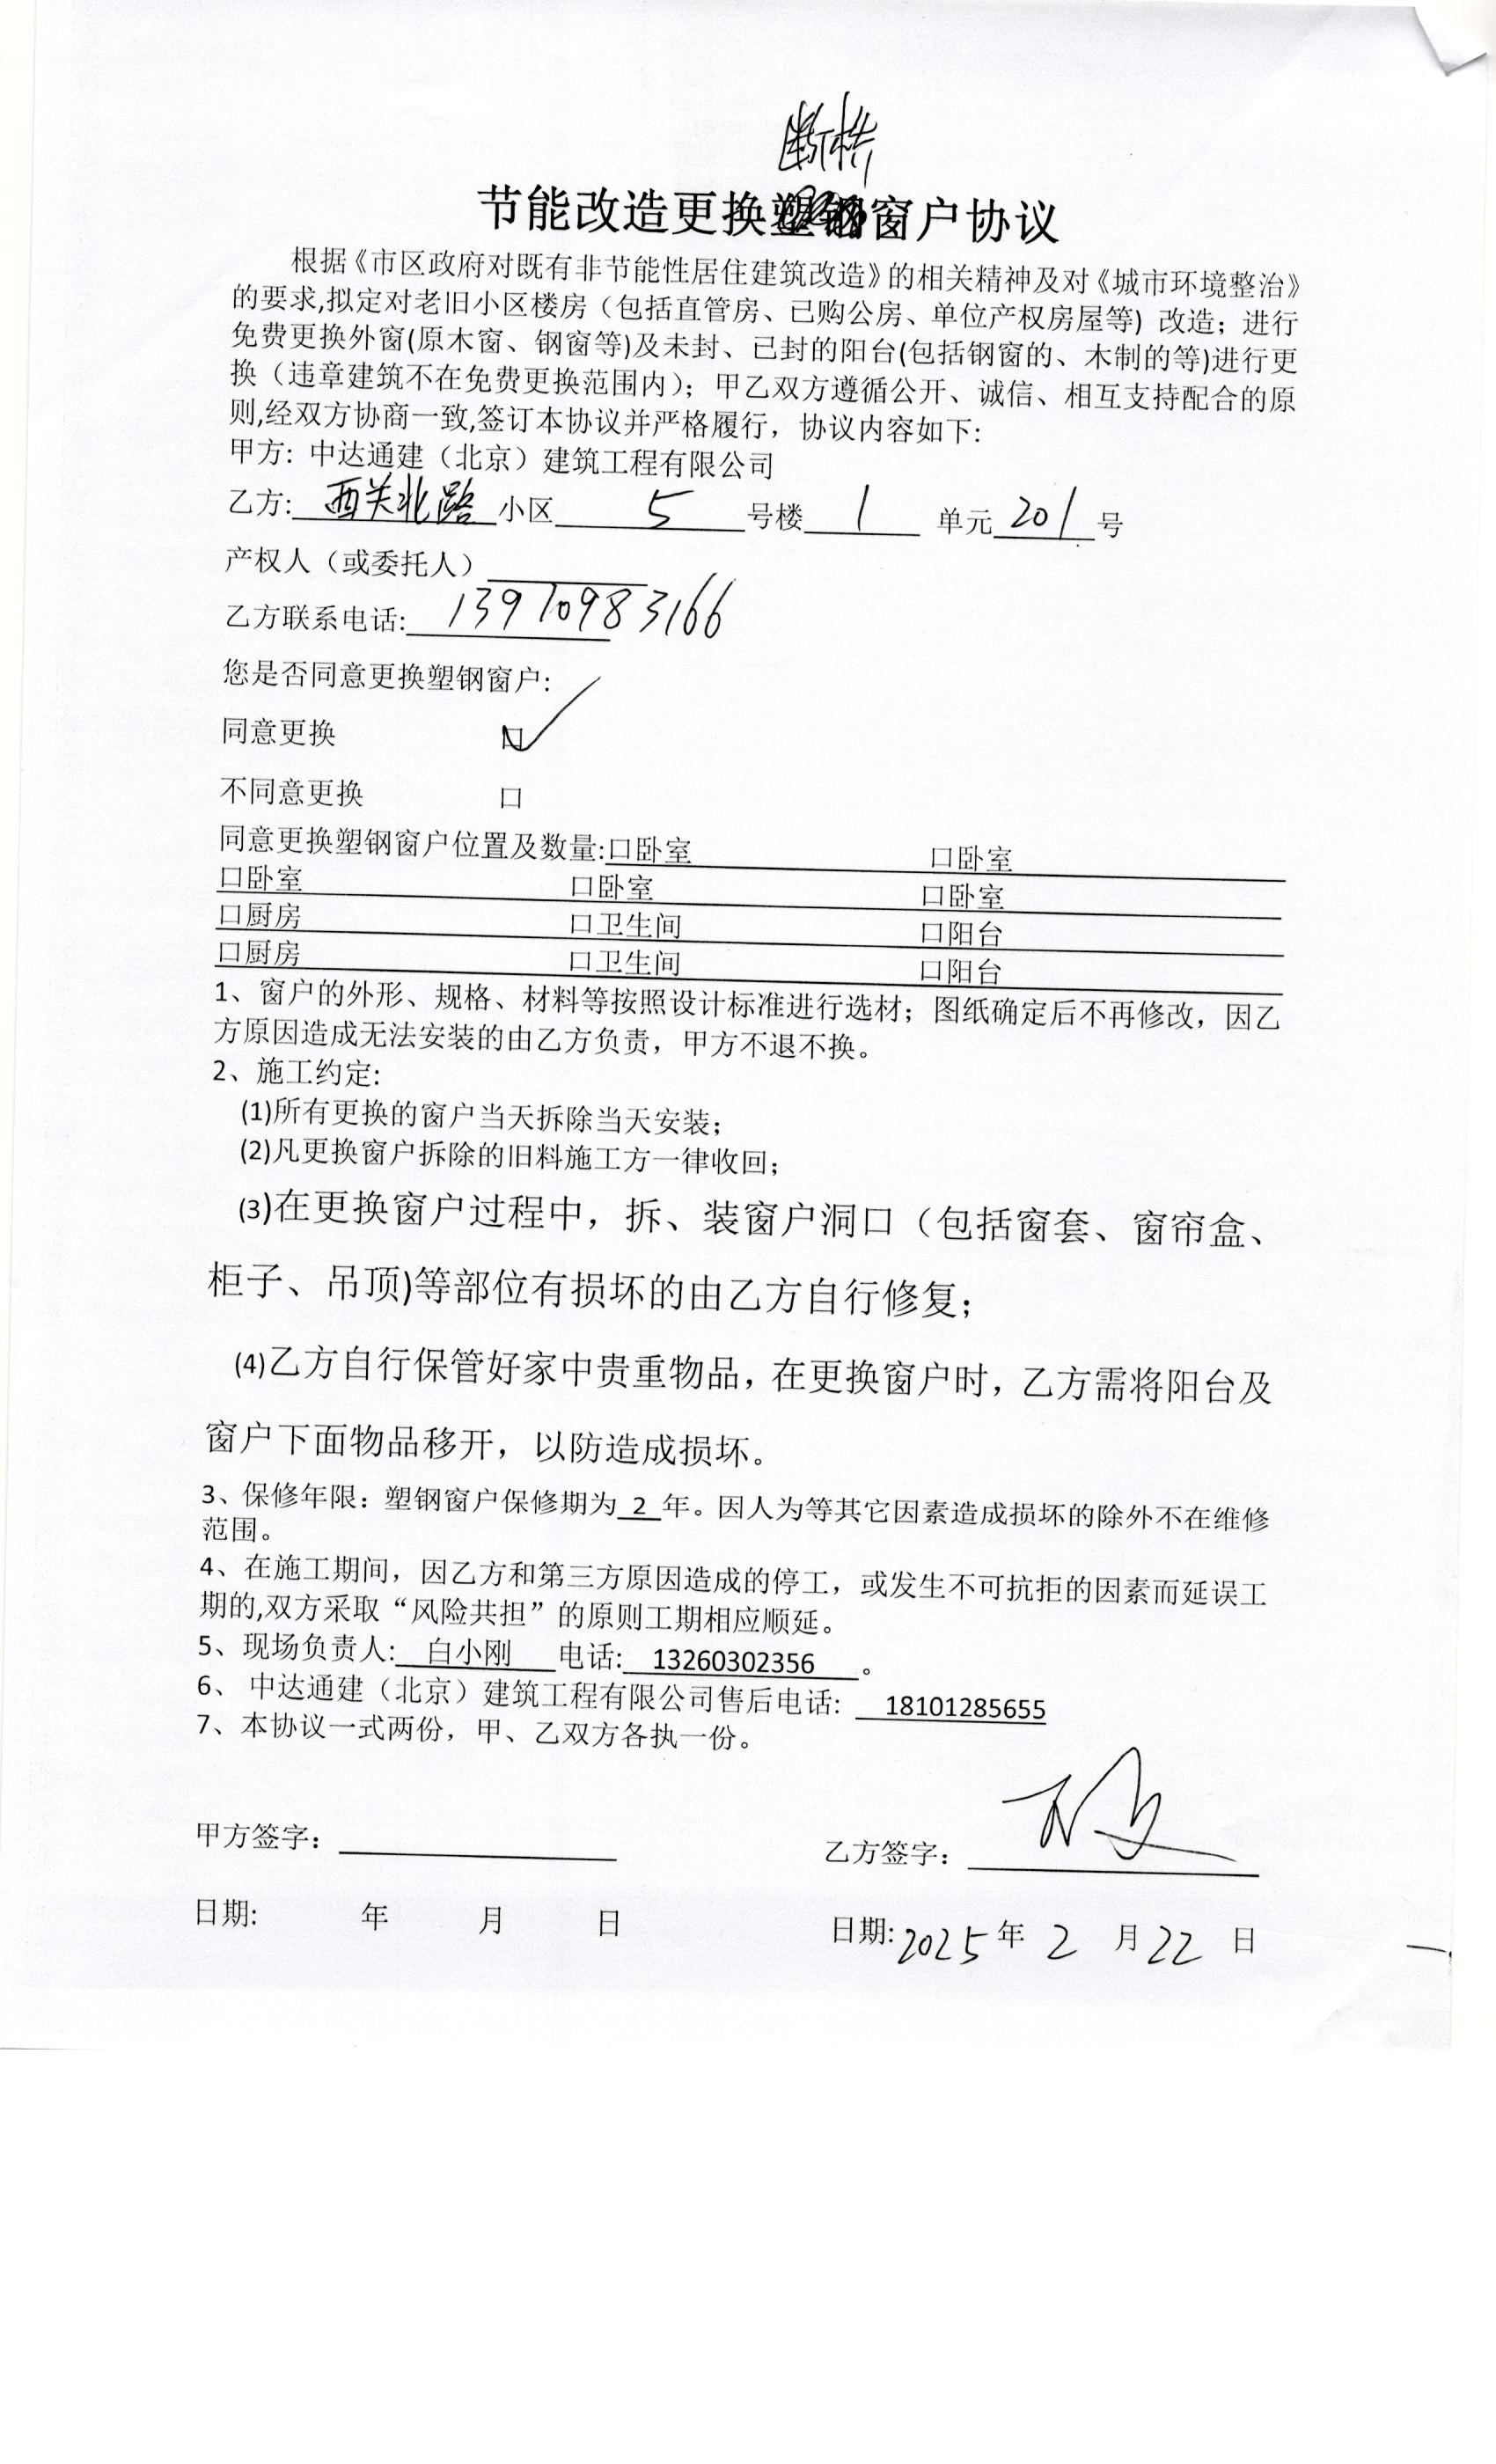 断桥
节能改造更换塑钢窗户协议
根据《市区政府对既有非节能性居住建筑改造》的相关精神及对《城市环境整治》
的要求,拟定对老旧小区楼房（包括直管房、已购公房、单位产权房屋等) 改造；进行
免费更换外窗(原木窗、钢窗等)及未封、已封的阳台(包括钢窗的、木制的等)进行更
换（违章建筑不在免费更换范围内)；甲乙双方遵循公开、诚信、相互支持配合的原
则,经双方协商一致,签订本协议并严格履行，协议内容如下:
甲方: 中达通建（北京）建筑工程有限公司
乙方: 西关北路 小区 5 号楼 1 单元 201 号
产权人（或委托人）
乙方联系电话: 13970983166
您是否同意更换塑钢窗户:
同意更换 口
不同意更换 口
同意更换塑钢窗户位置及数量:口卧室 口卧室
口卧室 口卧室 口卧室
口厨房 口卫生间 口阳台
口厨房 口卫生间 口阳台
1、窗户的外形、规格、材料等按照设计标准进行选材；图纸确定后不再修改，因乙
方原因造成无法安装的由乙方负责，甲方不退不换。
2、施工约定:
(1)所有更换的窗户当天拆除当天安装；
(2)凡更换窗户拆除的旧料施工方一律收回；
(3)在更换窗户过程中，拆、装窗户洞口（包括窗套、窗帘盒、
柜子、吊顶)等部位有损坏的由乙方自行修复；
(4)乙方自行保管好家中贵重物品，在更换窗户时，乙方需将阳台及
窗户下面物品移开，以防造成损坏。
3、保修年限：塑钢窗户保修期为 2 年。因人为等其它因素造成损坏的除外不在维修
范围。
4、在施工期间，因乙方和第三方原因造成的停工，或发生不可抗拒的因素而延误工
期的,双方采取“风险共担”的原则工期相应顺延。
5、现场负责人: 白小刚 电话: 13260302356 。
6、 中达通建（北京）建筑工程有限公司售后电话: 18101285655
7、本协议一式两份，甲、乙双方各执一份。
甲方签字： 乙方签字：
日期: 年 月 日 日期: 2025 年 2 月 22 日